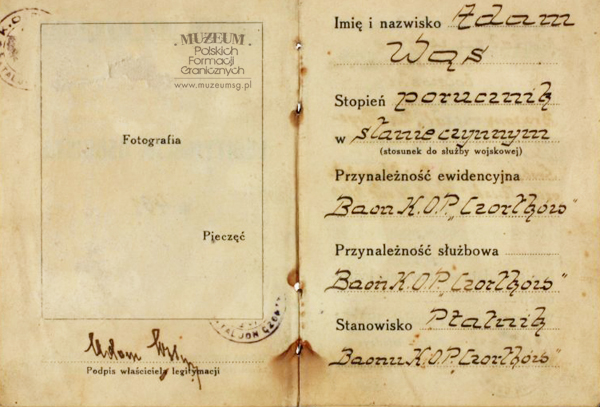 K.O.
MUZEUM
Polskich
Formacji
Granicznych
www.muzeumsg.pl
Fotografia
Pieczęć
Adam
Podpis właściciela legitymacji
Imię i nazwisko Adam
Wąs
Stopień porucznik
w stanie czynnym
(stosunek do służby wojskowej)
Przynależność ewidencyjna
Baon K.O.P. „Czortków"
Przynależność służbowa
Baon K.O.P. „Czortków"
Stanowisko Płatnik
Baonu K.O.P. „Czortków"